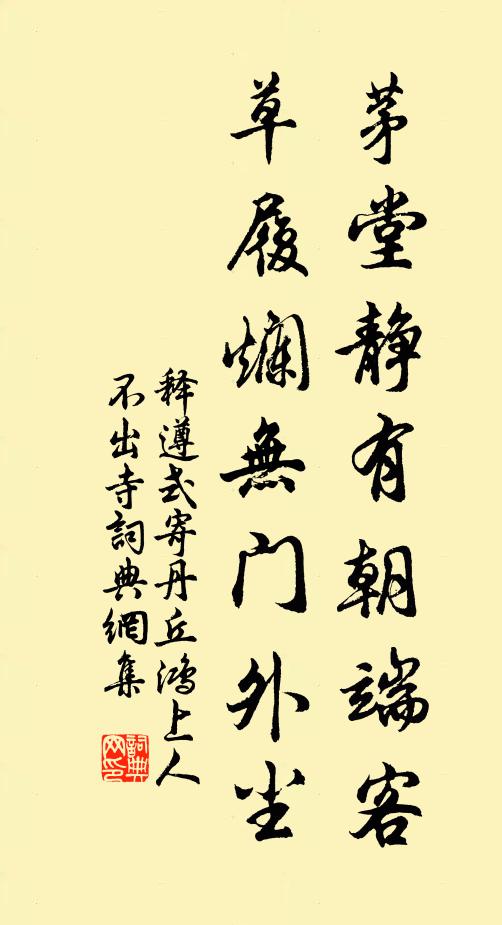 茅堂静有朝端客
草履爛無门外尘
释遵式寄丹丘鸿上人
不出寺詞典網集
詞典网印